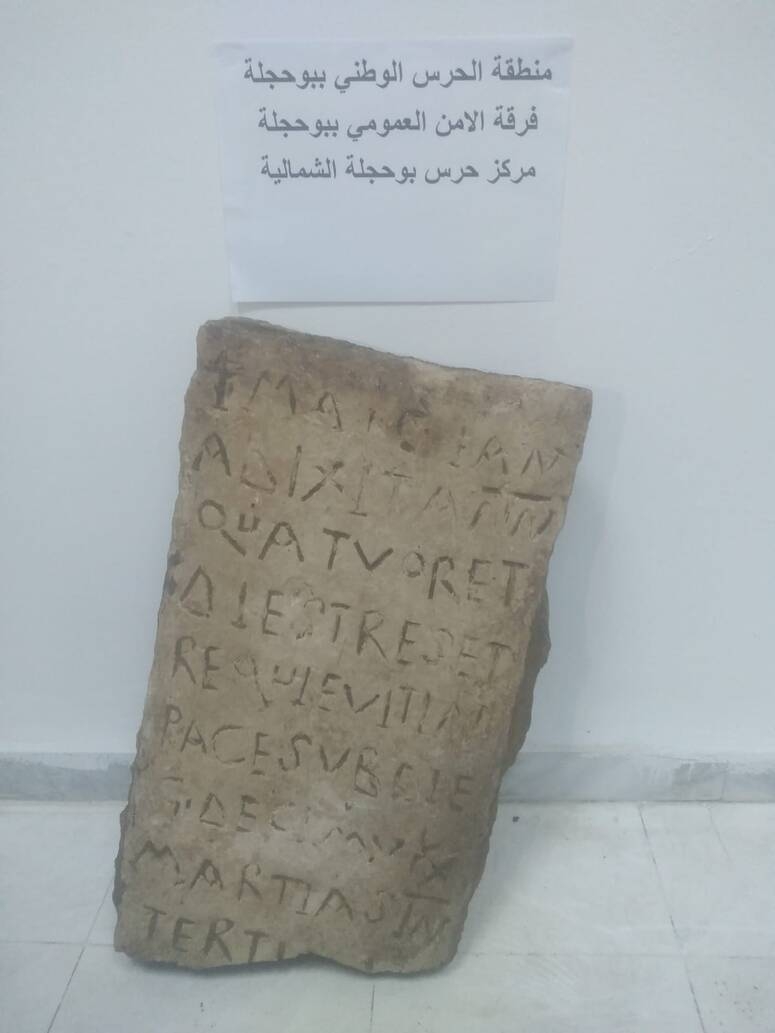 منطقة الحرس الوطني ببوحجلة
فرقة الامن العمومي ببوحجلة
مركز حرس بوحجلة الشمالية
ADIXITANN
QUATVORET
DIESTRESET
REQUIEVITIN
PACESVBDIE
DECIMV
MARTIASIN
TERTI